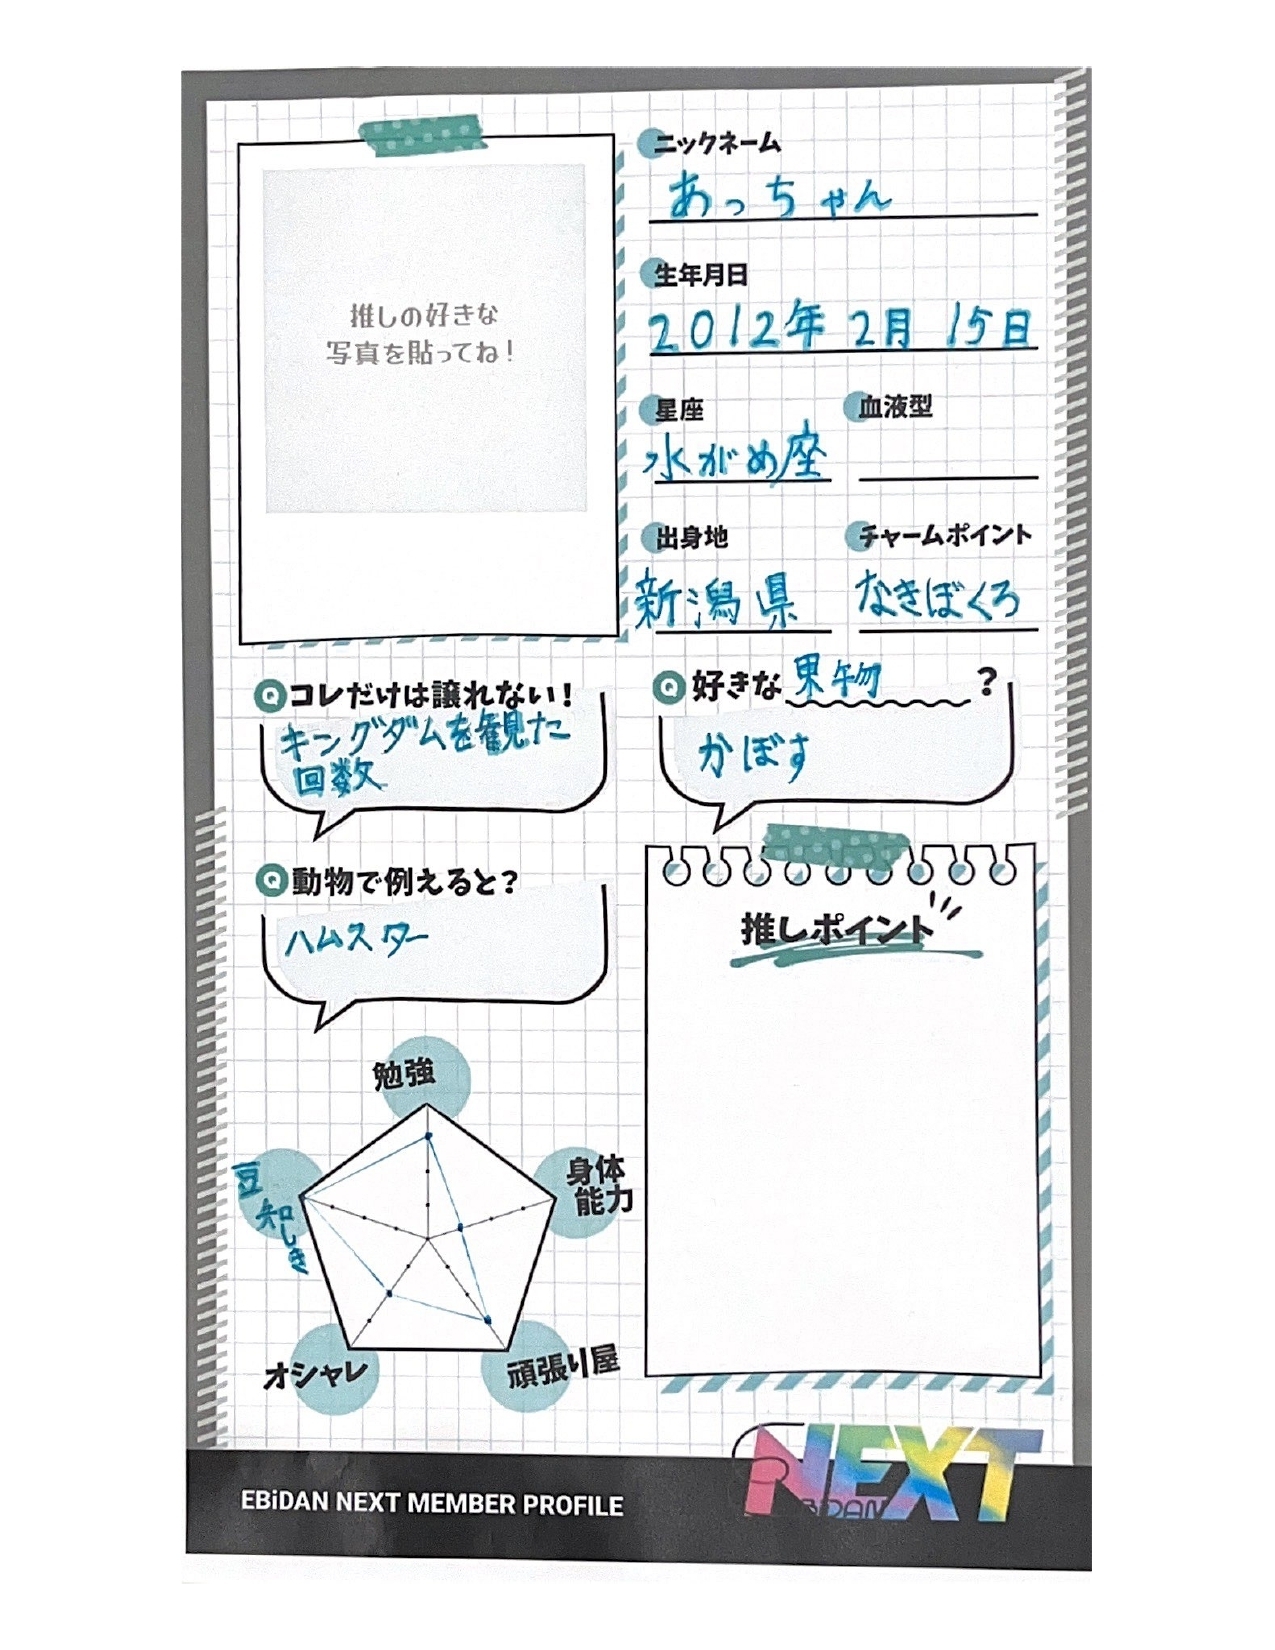 ニックネーム
あっちゃん
推しの好きな
写真を貼ってね！
生年月日
2012年 2月 15日
星座
水がめ座
血液型
出身地
新潟県
チャームポイント
なきぼくろ
Q コレだけは譲れない！
キングダムを観た
回数
Q 好きな果物？
かぼす
Q 動物で例えると？
ハムスター
推しポイント
勉強
身体
能力
豆知しき
オシャレ
頑張り屋
EBiDAN NEXT MEMBER PROFILE
NEXT
EBiDAN